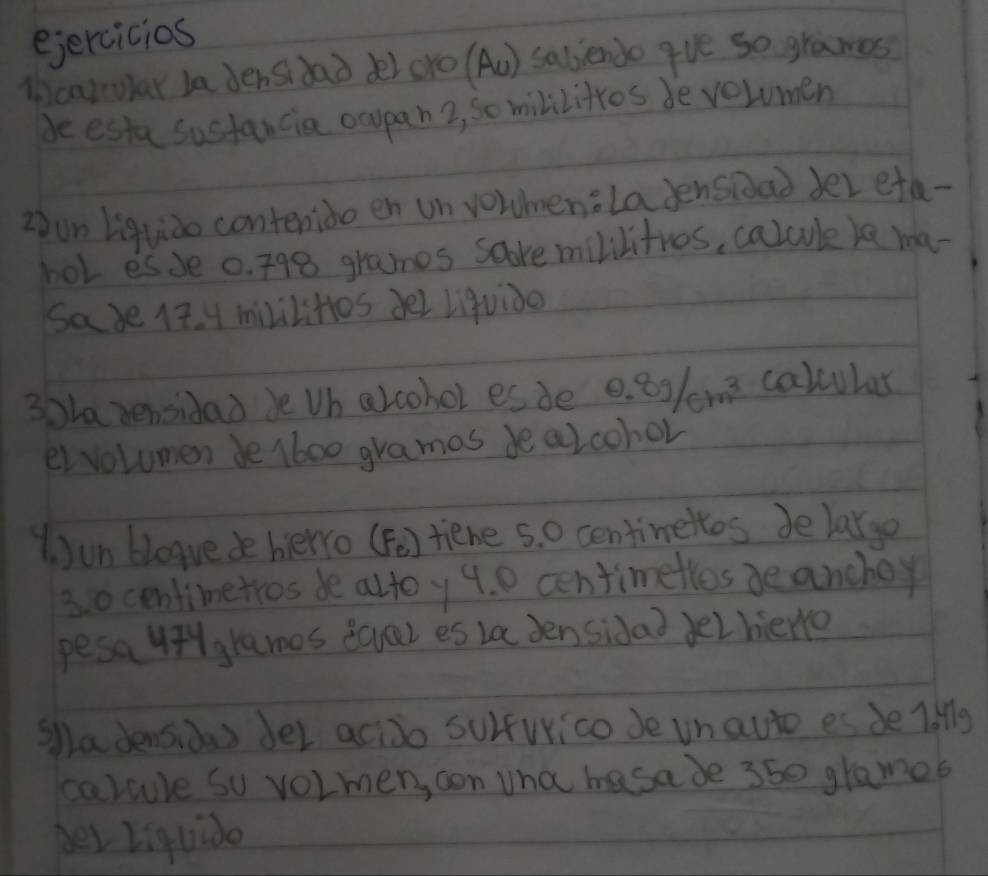 ejercicios
1) calcular la densidad del oro (Au) sabiendo que 50 gramos
de esta sustancia ocupan 2,50 mililitros de volumen
2) un liquido contenido en un volumen: La densidad del eta-
nol es de 0.798 gramos sobre mililitros. calcule la ma-
sa de 17.4 mililitros del liquido
3) la densidad de un alcohol es de 0.8g/cm³ calcular
el volumen de 1600 gramos de alcohol
4.) un bloque de hierro (Fe) tiene 5.0 centimetros de largo
3.0 centimetros de alto y 4.0 centimetros de ancho y
pesa 474 gramos cual es la densidad del hierro
5) la densidad del acido sulfurico de un auto es de
calcule su volmen, con una masa de 350 gramos
del liquido